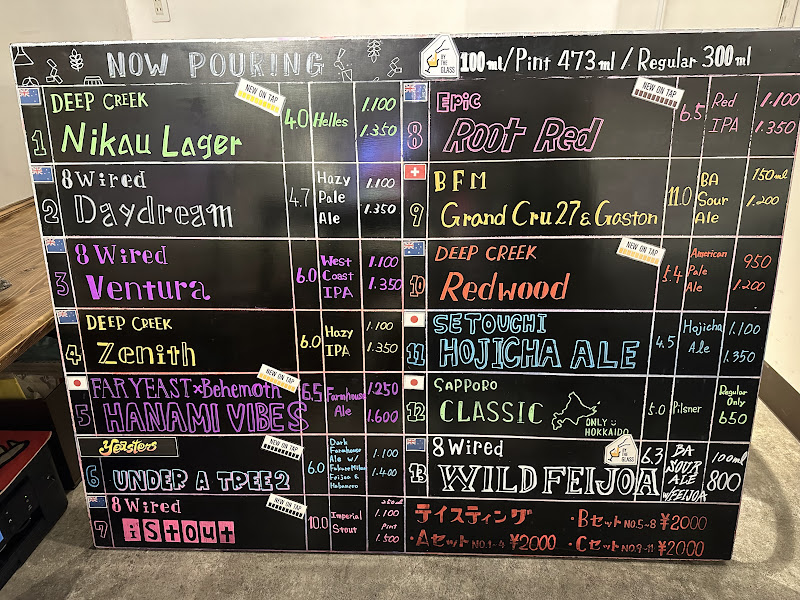 NOW POURING
BY THE GLASS
100ml/Pint 473ml/Regular 300ml
1
DEEP CREEK
NEW ON TAP
Nikau Lager
4.0
Helles
1.100
1.350
2
8 Wired
Daydream
4.7
Hazy
Pale
Ale
1.100
1.350
3
8 Wired
Ventura
6.0
West
Coast
IPA
1.100
1.350
4
DEEP CREEK
Zenith
6.0
Hazy
IPA
1.100
1.350
5
FARYEAST×Behemoth
NEW ON TAP
HANAMI VIBES
6.5
Farmhouse
Ale
1.250
1.600
6
Yeasters
NEW ON TAP
UNDER A TREE 2
6.0
Dark
Farmhouse
Ale w/
Feijoa &
Habanero
1.100
1.400
7
8 Wired
NEW ON TAP
iStout
10.0
Imperial
Stout
250ml
1.100
Pint
1.500
8
Epic
NEW ON TAP
Root Red
6.5
Red
IPA
1.100
1.350
9
BFM
Grand Cru 27 & Gaston
11.0
BA
Sour
Ale
150ml
1.200
10
DEEP CREEK
NEW ON TAP
Redwood
5.4
American
Pale
Ale
950
1.200
11
SETOUCHI
HOJICHA ALE
4.5
Hojicha
Ale
1.100
1.350
12
SAPPORO
CLASSIC
ONLY
HOKKAIDO
5.0
Pilsner
Regular
Only
650
13
8 Wired
BY THE GLASS
WILD FEIJOA
6.3
BA
SOUR
ALE
W/FEIJOA
100ml
800
テイスティング
・Aセット NO.1-4 ¥2000
・Bセット NO.5-8 ¥2000
・Cセット NO.9-11 ¥2000